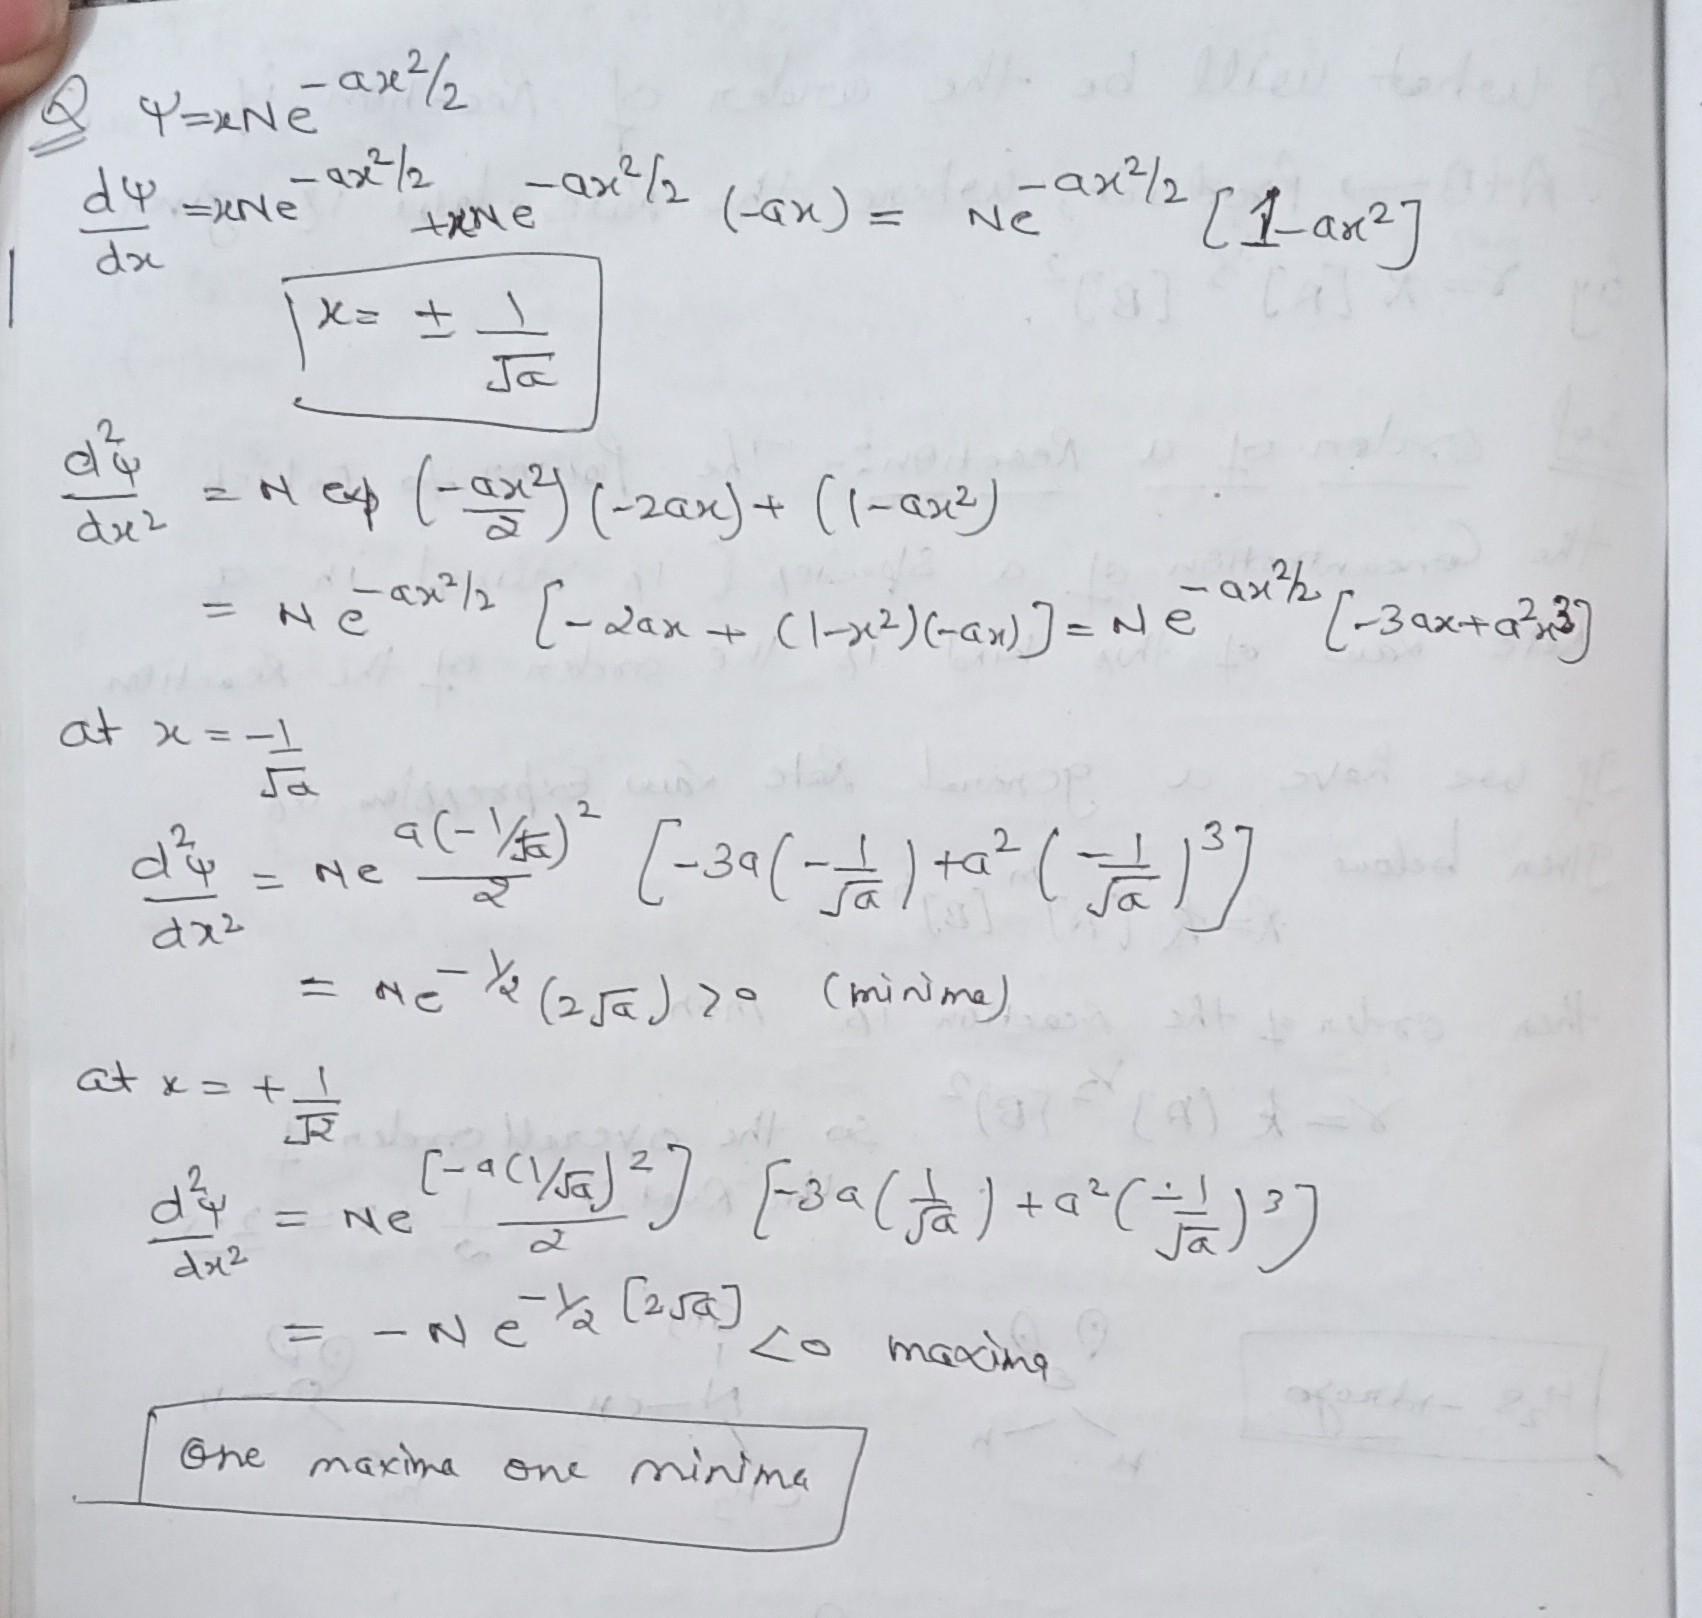 Q ψ=xNe^{-ax²/2}
dψ/dx =xNe^{-ax²/2} +xNe^{-ax²/2} (-ax) = Ne^{-ax²/2} [1-ax²]
x= ± 1/√a
d²ψ/dx² = N exp (-ax²/2) (-2ax) + (1-ax²)
= Ne^{-ax²/2} [-2ax + (1-x²)(-ax)] = Ne^{-ax²/2} [-3ax+a²x³]
at x = -1/√a
d²ψ/dx² = Ne^{a(-1/√a)²/2} [-3a(-1/√a) +a² (-1/√a)³]
= Ne^{-1/2} (2√a) >0 (minima)
at x = + 1/√2
d²ψ/dx² = Ne^{[-a(1/√a)²/2]} [-3a(1/√a) + a²(-1/√a)³]
= -Ne^{-1/2} [2√a] <0 maxima
One maxima one minima